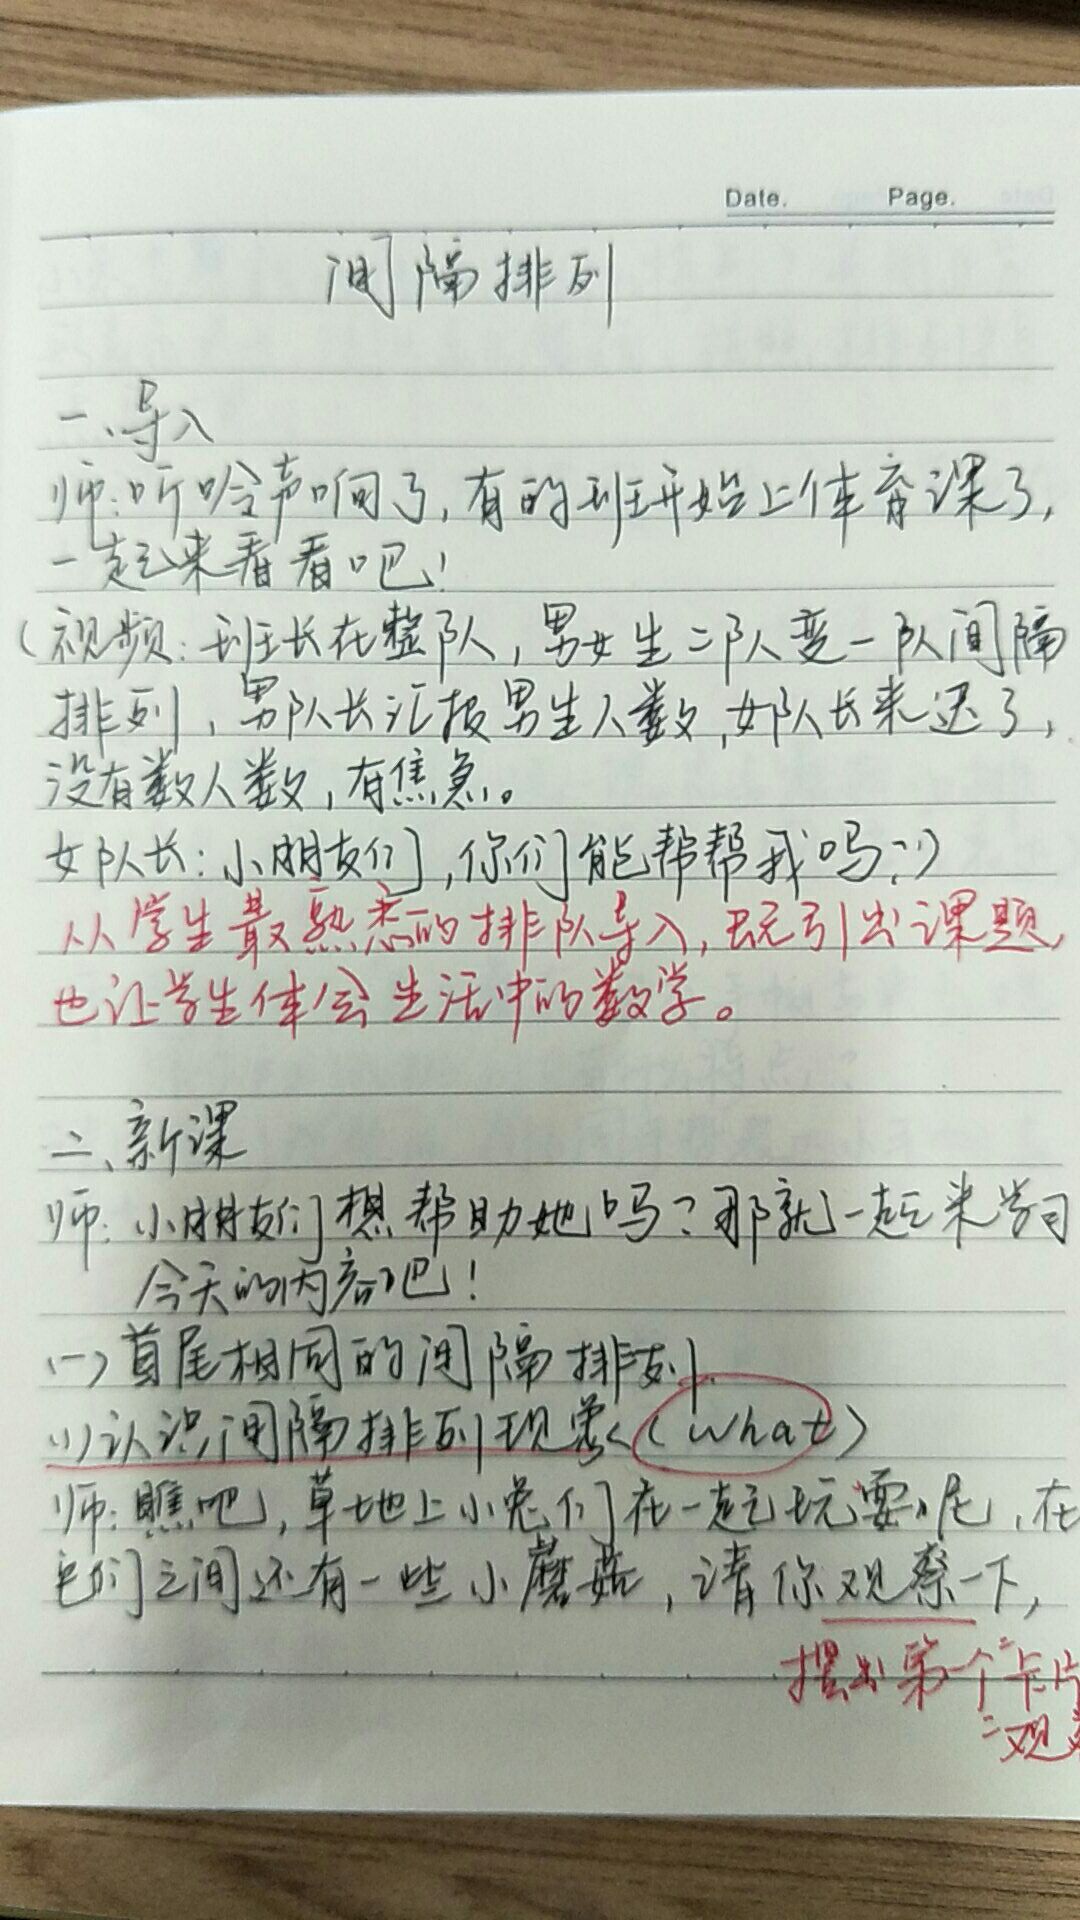 Date. Page.
间隔排列
一、导入
师:听铃声响了,有的班开始上体育课了,
一起来看看吧!
(视频:班长在整队,男女生二队变一队间隔
排列,男队长汇报男生人数,女队长来迟了,
没有数人数,有焦急。
女队长:小朋友们,你们能帮帮我吗?)
从学生最熟悉的排队导入,既引出课题,
也让学生体会生活中的数学。
二、新课
师:小朋友们想帮助她吗?那就一起来学习
今天的内容吧!
(一)首尾相同的间隔排列.
(1)认识间隔排列现象(what)
师:瞧吧,草地上小兔们在一起玩耍呢,在
它们之间还有一些小蘑菇,请你观察一下,
摆出第一个"卡片
"观